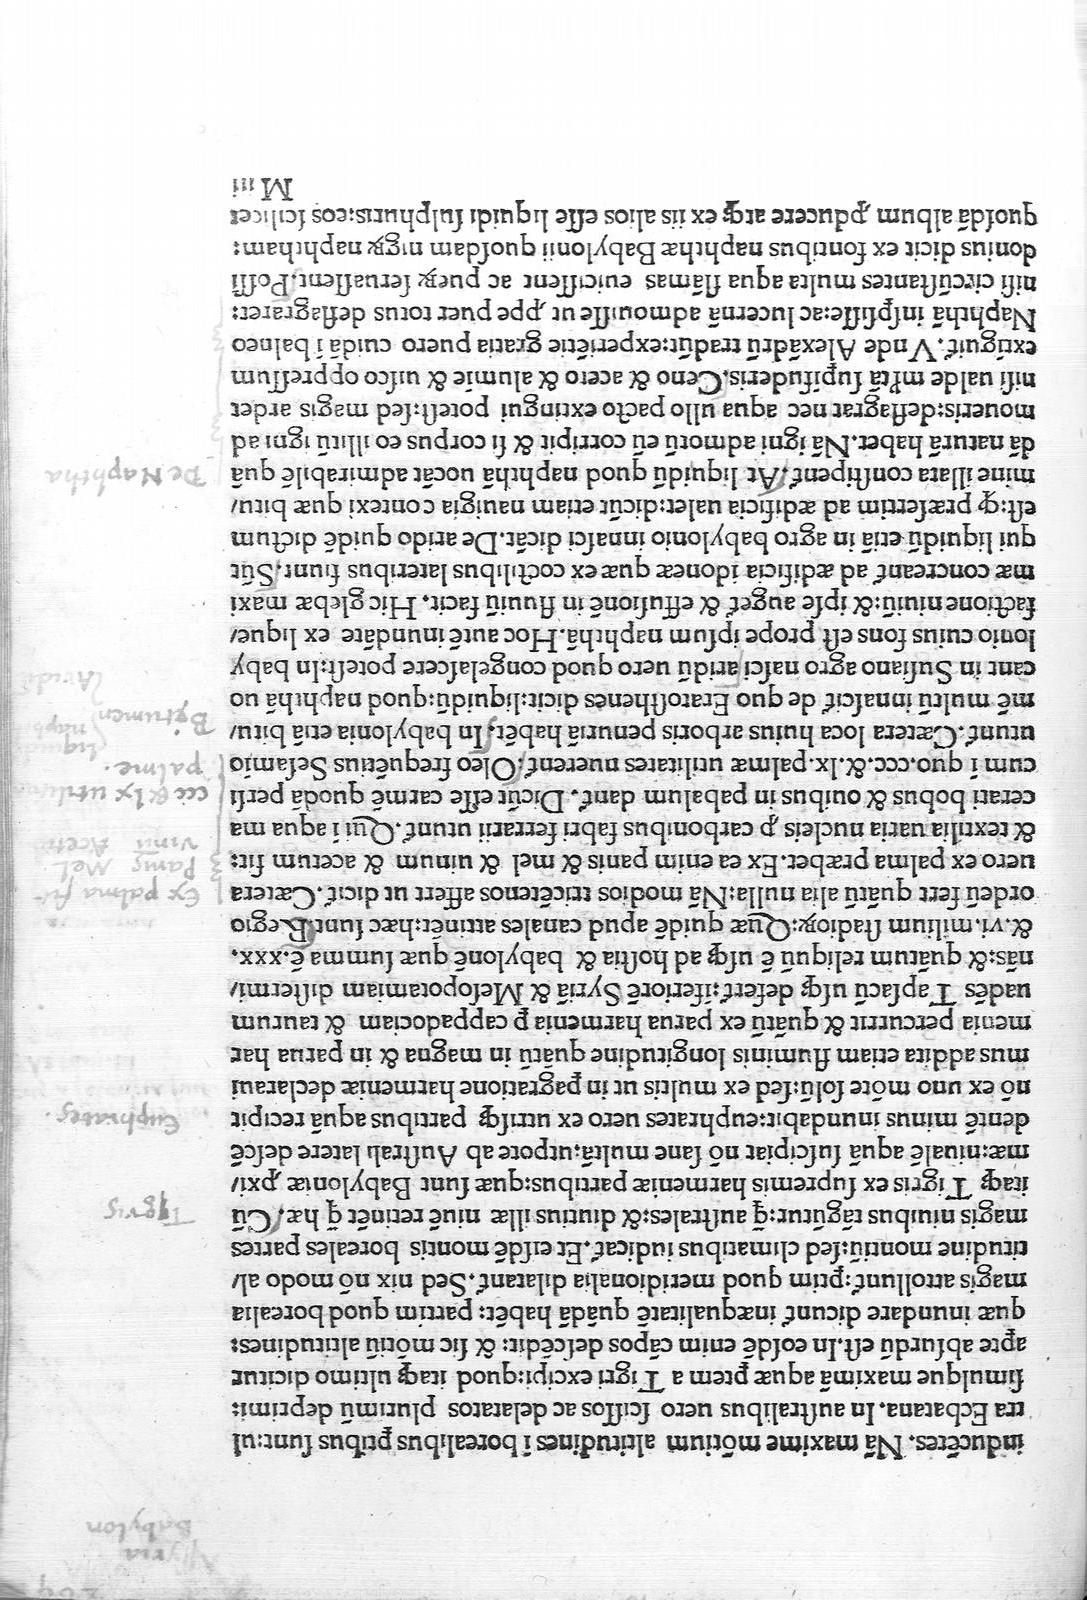 inducētes. Nā maxime mōtium altitudines ī borealibus ꝑtibus sunt:ul
tra Ecbatana. In australibus uero scissos ac delatatos plurimū deprimi:
simulque maximā aquæ ꝑtem a Tigri excipi:quod itaq; ultimo dicitur
aꝑte absurdū est. In eosdē enim cāpos descēdit: & sic mōtiū altitudines:
quæ inundare dicunt̃ inæqualitatē quādā habēt: partim quod borealia
magis attollunt̃:ꝑtim quod meridionalia dilatant̃. Sed nix nō modo al/
titudine montiū:sed climatibus iudicat̃. Et eisdē montis boreales partes
magis niuibus tāgūtur:q̄ australes:& diutius illæ niuē retinēt q̄ hæ. Cū
itaq; Tigris ex supremis harmeniæ partibus:quæ sunt Babyloniæ ꝓxi/
mæ:niualē aquā suscipiat nō sane multā:utpote ab Australi latere descē
dentē minus inundabit:euphrates uero ex utrisq; partibus aquā recipit
nō ex uno mōte solū:sed ex multis ut in ꝑagratione harmeniæ declaraui
mus addita etiam fluminis longitudine quātū in magna & in parua har
menia percurrit & quātū ex parua harmenia ꝑ cappadociam & taurum
uadēs Tapsacū usq; defert̃:iferiorē Syriā & Mesopotamiam distermi/
nās:& quātum reliquū ē usq; ad hostia & babylonē quæ summa ē.xxx.
& .vi. milium stadioꝝ: Quæ quidē apud canales attinēt:hæc sunt. Regio
ordeū fert quātū alia nulla: Nā modios tricētenos affert ut dicit̃. Cætera
uero ex palma præbet. Ex ea enim panis & mel & uinum & acetum fit:
& textilia uaria nucleis ꝑ carbonibus fabri ferrarii utunt̃. Qui ī aqua ma
cerati bobus & ouibus in pabalum dant̃. Dicūt esse carmē quodā persi
cum ī quo.ccc.&.lx.palmæ utilitates nuerent̃. Oleo frequētius Sesamio
utunt̃. Cætera loca huius arboris penuriā habēt. In babylonia etiā bitu/
mē multū innascit̃ de quo Eratosthenes dicit:liquidū:quod naphthā uo
cant in Susiano agro nasci aridū uero quod congelascere potest:In baby
lonio cuius fons est prope ipsum naphthā. Hoc autē inundāte ex lique/
factione niuiū:& ipse auget̃ & effusionē in fluuiū facit. Hic glebæ maxi
mæ concreant̃ ad ædificia idoneæ quæ ex coctilibus lateribus fiunt. Sūt
qui liquidū etiā in agro babylonio innasci dicāt. De arido quidē dictum
est:q; præsertim ad ædificia ualet:dicūt etiam nauigia contexi quæ bitu/
mine illata constipent̃. At liquidū quod naphthā uocāt admirabilē quā
dā naturā habet. Nā igni admotū eū corripit & si corpus eo illitū igni ad
moueris:deflagrat nec aqua ullo pacto extingui potest:sed magis ardet
nisi ualde mꝉta supifuderis. Ceno & aceto & alumie & uisco oppressum
extīguit̃. Vnde Alexādrū tradūt:experiētie gratia puero cuidā ī balneo
Naphthā inspsisse:ac lucernā admouisse ut ꝓpe puer totus deflagraret:
nisi circūstantes multa aqua flāmas euicissent ac pueꝝ seruassent. Possi
donius dicit ex fontibus naphthæ Babylonii quosdam nigꝝ naphtham:
quosdā album ꝓducere atq; ex iis alios esse liquidi sulphuris:eos scilicet
M iii
Babylon
Tygris
Euphrates.
Ex palma fit
Panis Mel
Vinū Acetū
ccc & lx utilit
palme.
Bytumen
De Naphtha